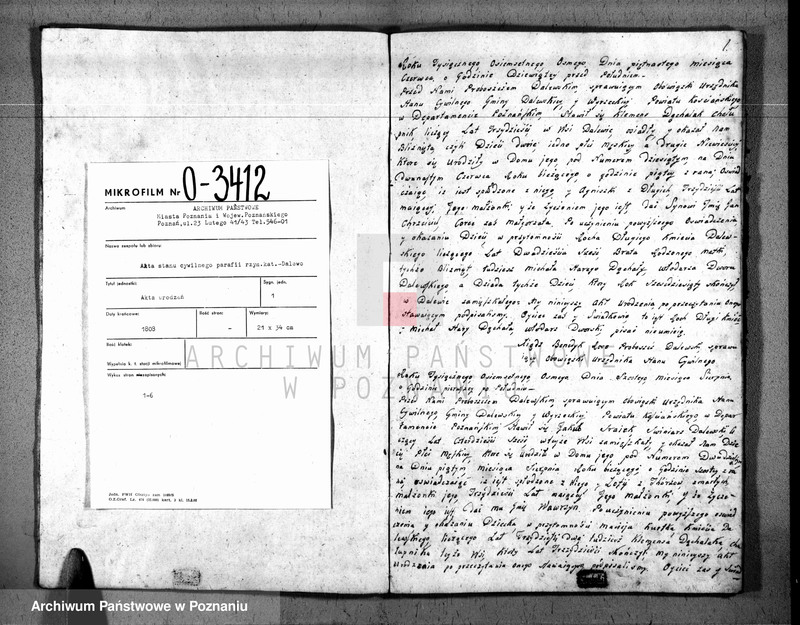 MIKROFILM Nr O-3412
Archiwum
ARCHIWUM PAŃSTWOWE
Miasta Poznania i Wojew.Poznańskiego
Poznań,ul.23 Lutego 41/43 Tel.546-01
Nazwa zespołu lub zbioru:
Akta stanu cywilnego parafii rzym.kat.-Dalewo
Tytuł jednostki:
Sygn. jedn.
Akta urodzeń
1
Daty krańcowe:
Ilość stron:
Wymiary:
1808
-
21 x 34 cm
Ilość klatek:
Wypełnia k. t. stacji mikrofilmowej
Wykaz stron
1-6
1.
Roku Tysięcznego Osiemsetnego Osmego, Dnia piętnastego miesiąca
Czerwca, o Godzinie Dziewiątej przed Południem.
Przed Nami Proboszczem Dalewskim, sprawującym Obowiązki Urzędnika
Stanu Cywilnego Gminy Dalewskiej y Wyrzeckiej Powiatu Kościańskiego
w Departamencie Poznańskim, Stawił się Klemens Dęchalak Chału
pnik liczący Lat Trzydzieści w Wsi Dalewie osiadły y okazał Nam
Bliznięta czyli Dzieci dwoje jedno płci Męskiey a drugie Niewieściey
które się Urodziły w Domu jego pod Numerem Dziesiątym na Dniu
Dwunastym Czerwca Roku bieżącego o godzinie piątey z rana
iż jest spłodzone z niego y Agnieszki z Długich Trzydzieści Lat
maiącey, Jego Małżonki y że życzeniem jego jest dać Synowi Imię Jan
Chrzciciel, Córce zaś Małgorzata. Po uczynieniu powyższego Oświadczenia
y okazaniu Dzieci w przytomności Locha Długiego Kmiecia Dalew-
skiego liczącego Lat Dwadzieścia Sześć Brata rodzonego matki,
tychże Bliźniąt tudzież Michała Starego Dęchały, Włodarza Dworu
Dalewskiego a Dziada tychże Dzieci, który Rok Sześćdziesiąty skończył
w Dalewie zamieszkałego My niniejszy Akt Urodzenia po przeczytaniu onego
Stawaiącym podpisaliśmy. Ociec zaś y Świadkowie to jest Loch Długi Kmieć
y Michał Stary Dęchała Włodarz Dworski pisać nieumieią.
Xiądz Benedykt Proboszcz Dalewski sprawu
iący Obowiązki Urzędnika Stanu Cywilnego
Roku Tysięcznego Osiemsetnego Osmego Dnia Szóstego Miesiąca Sierpnia
o Godzinie pierwszey po Południu
Przed Nami Proboszczem Dalewskim sprawującym obowiązki Urzędnika Stanu
Cywilnego Gminy Dalewskiey y Wyrzeckiey Powiatu Kościańskiego w Depar
tamencie Poznańskim Stawił się Jakub Dalewski li
czący Lat Czterdzieści Sześć w teyże Wsi zamieszkały y okazał Nam Dzie
cię Płci Męskiey, które się urodziło w Domu jego pod Numerem
na Dniu piątym miesiąca Sierpnia Roku bieżącego o godzinie szóstey z ra
na, oświadczaiąc iż jest spłodzone z Niego y Zofii z
małżonki jego Trzydzieści Lat maiącey Jego Małżonki y że życze-
niem jego jest dać mu Imię Wawrzyn. Po uczynieniu powyższego oświad
czenia y okazaniu Dziecka w przytomności Macieja Kurtka Kmiecia Da
lewskiego liczącego Lat Trzydzieści Dwa tudzież Klemensa Dęchalaka Cha
łupnika teyże Wsi, który Lat Trzydzieści skończył, My niniejszy Akt
Urodzenia po przeczytaniu onego Stawaiącym podpisaliśmy. Ociec zaś y Świad
ARCHIWUM PAŃSTWOWE
W POZNANIU
Archiwum Państwowe w Poznaniu